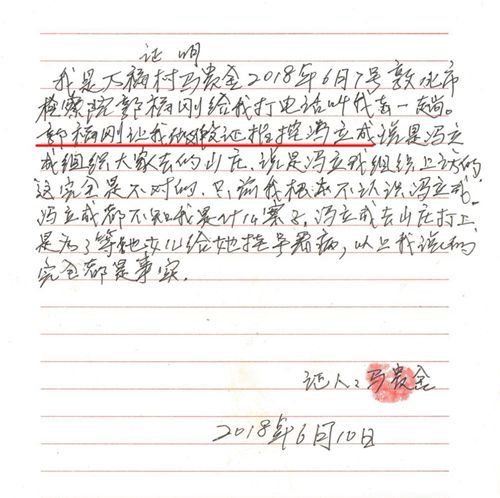 证明
我是大桥村马贵金2018年6月7号敦化市
检察院郭相刚给我打电话叫我去一趟。
郭相刚让我做假证指控冯立成说是冯立
成组织大家去的山庄,说是冯立成组织上访的
这完全是不对的,只前我根本不认识冯立成
冯立成都不知我是什么寨子,冯立成去山庄打上
是为了等她女儿给她挂号看病,以上我说的
完全都是事实。
证人:马贵金
2018年6月10日